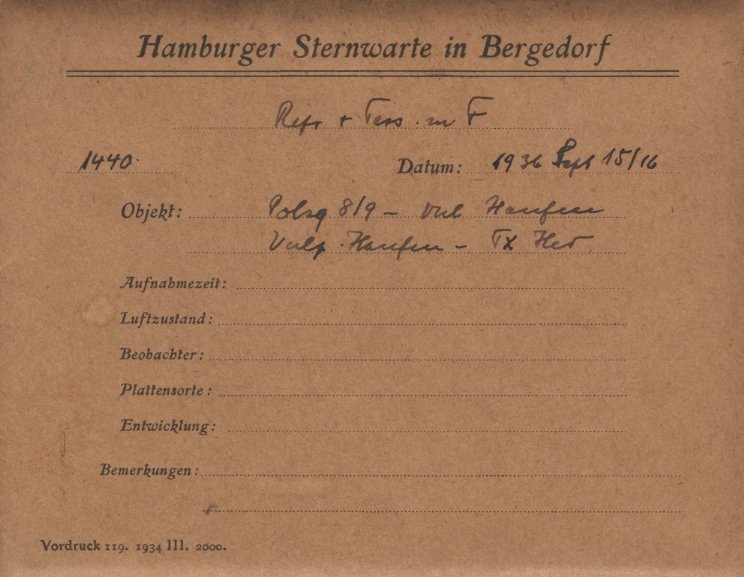 Hamburger Sternwarte in Bergedorf
Refr + Tess. m F
1440. Datum: 1936 Sept 15/16
Objekt: Polsq 8/9 – Vul Haufen
Vulp. Haufen – TX Her
Aufnahmezeit:
Luftzustand:
Beobachter:
Plattensorte:
Entwicklung:
Bemerkungen:
Vordruck 119. 1934 III. 2000.